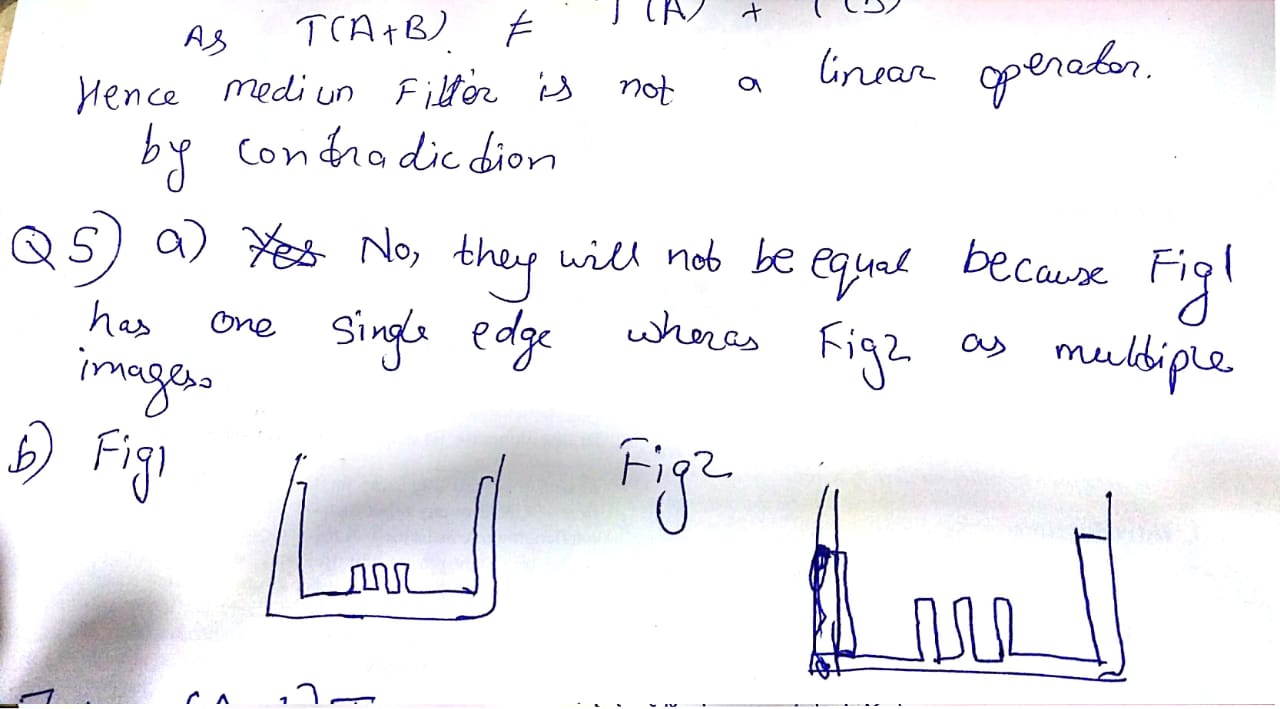 As T(A+B) ≠ T(A) + T(B)
Hence mediun Filter is not a linear operator.
by contradiction
Q5) a) Yes No, they will not be equal because Fig1
has one single edge wheras Fig2 as multiple
images.
b) Fig1 Fig2